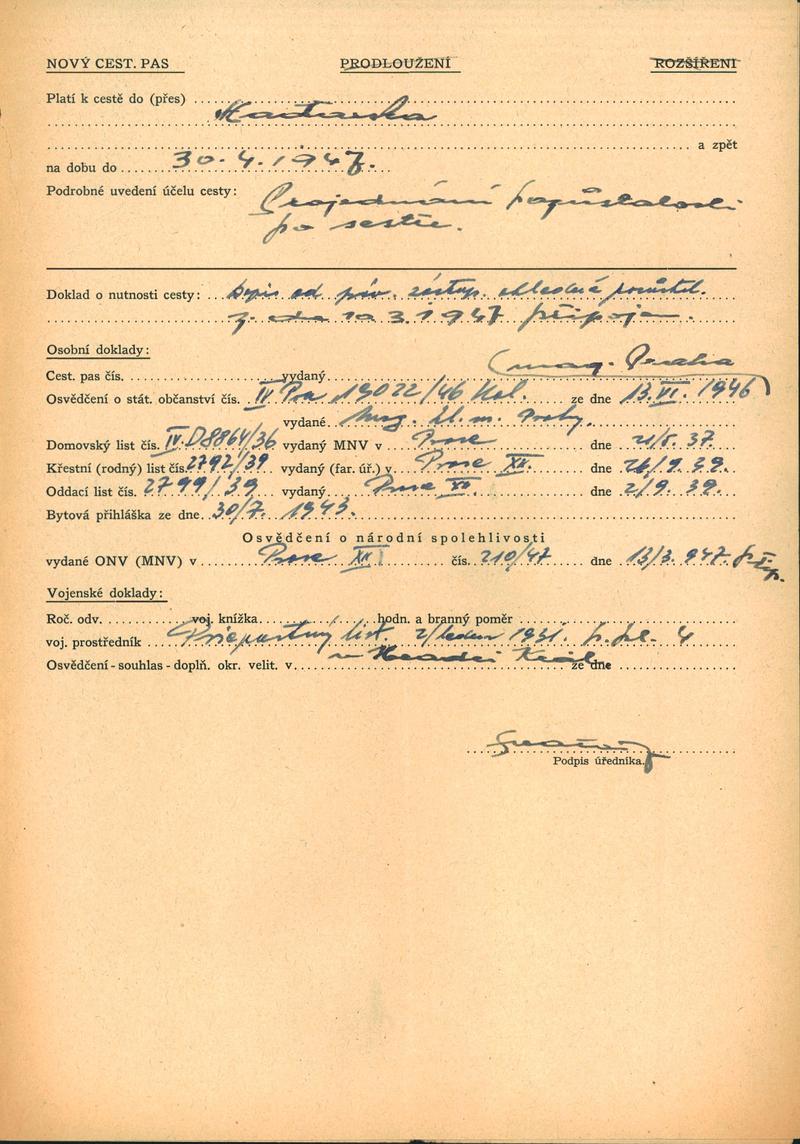 NOVÝ CEST. PAS PRODLOUŽENÍ ROZŠÍŘENI
Platí k cestě do (přes)
Maďarska
a zpět
na dobu do 30.4.1947.
Podrobné uvedení účelu cesty: Projednání pozůstalosti
po sestře.
Doklad o nutnosti cesty: dopis od práv. zástup. ohledně pozůstal.
z. dne 10 3.1947 připojen.
Osobní doklady: (mag. Praha
Cest. pas čís. vydaný
Osvědčení o stát. občanství čís. IV 19022/46 ze dne 13.VI. 1946)
vydané Mag. hl. m. Prahy.
Domovský list čís. IV.D8864/36 vydaný MNV v Praze dne 21/5. 37.
Křestní (rodný) list čís. 2792/39 vydaný (far. úř.) v Praze XII. dne 26/9. 39.
Oddací list čís. 2799/39 vydaný Praze XII. dne 2/9. 39.
Bytová přihláška ze dne 30/7. 1943.
Osvědčení o národní spolehlivosti
vydané ONV (MNV) v Praze XII čís. 210/47 dne 13/3. 947.
Vojenské doklady:
Roč. odv. voj. knížka hodn. a branný poměr
voj. prostředník list. 2/leden 1931. p. pl. 4
Osvědčení - souhlas - doplň. okr. velit. v v Hradci Král. ze dne
Podpis úředníka.